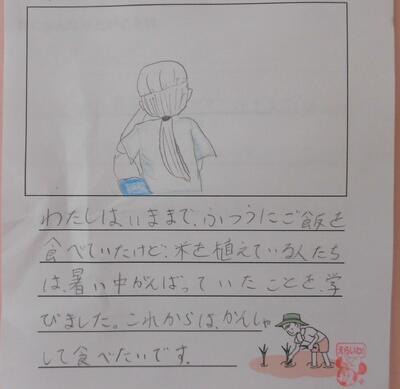 わたしは、いままで、ふつうにご飯を
食べていたけど、米を植えている人たち
は、暑い中がんばっていたことを、学
びました。これからは、かんしゃ
して食べたいです。
えらいわ!